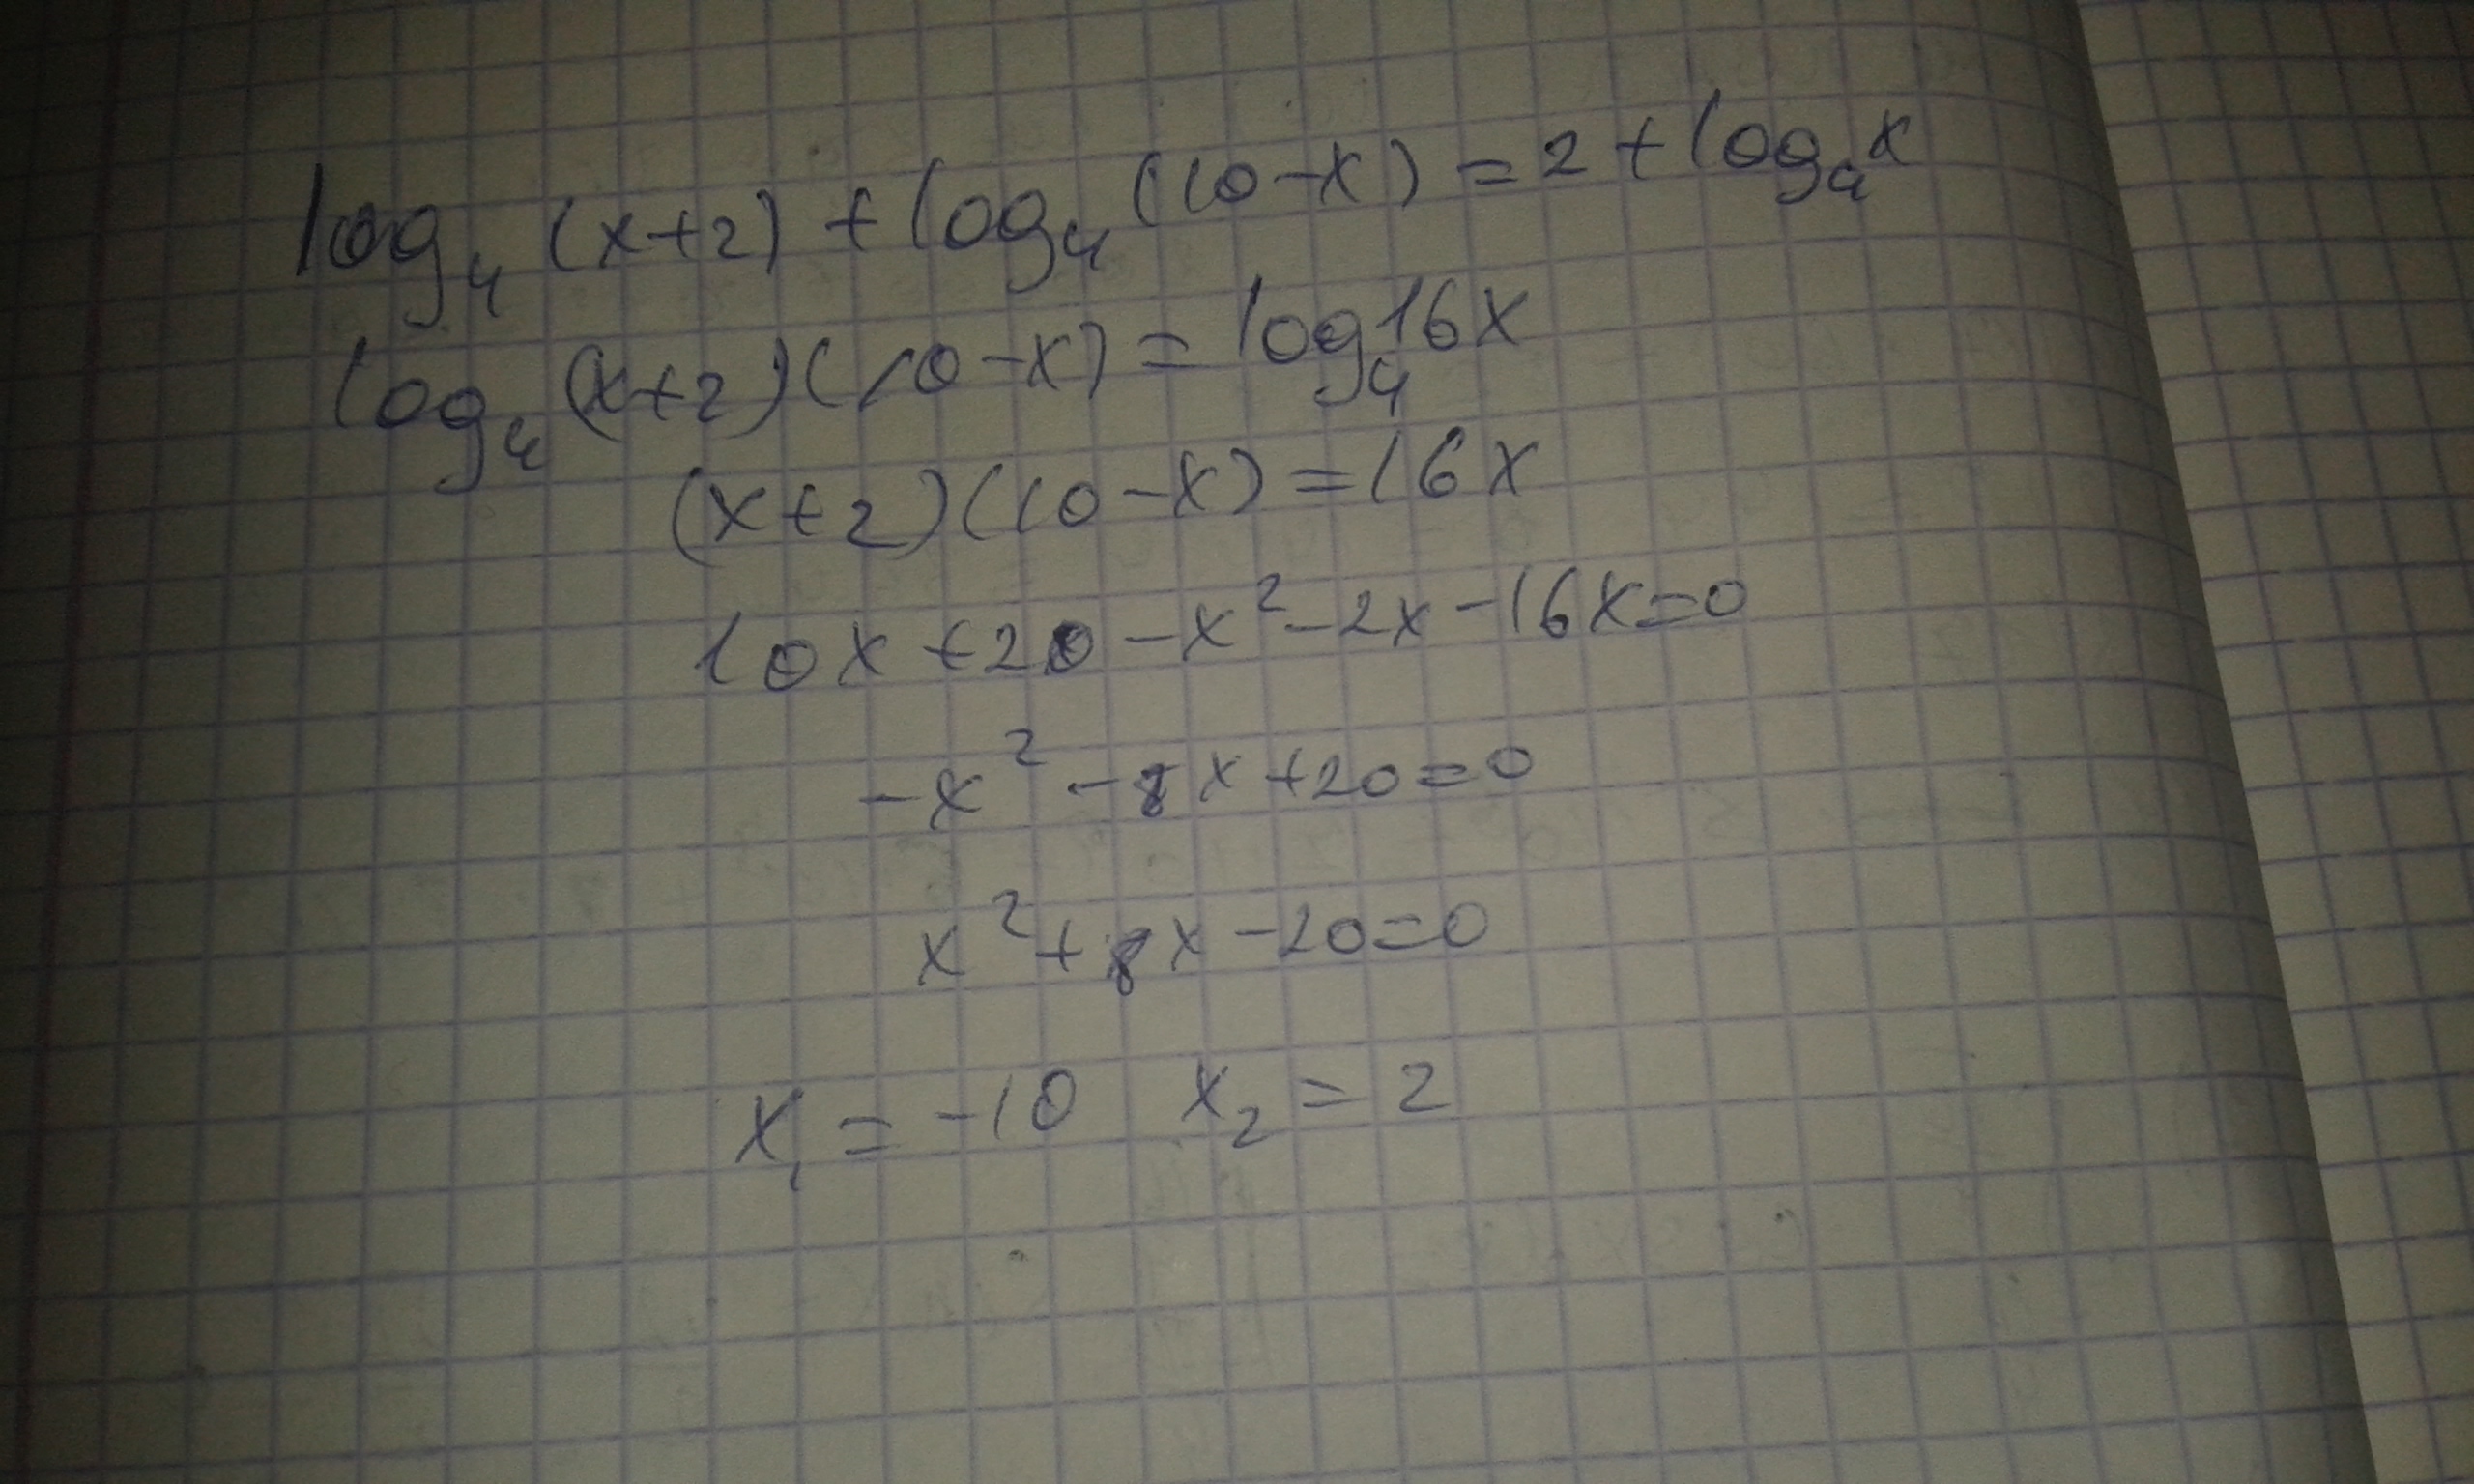 log₄ (x+2) + log₄ (10-x) = 2 + log₄ x
log₄ (x+2)(10-x) = log₄ 16x
(x+2)(10-x) = 16x
10x + 20 - x² - 2x - 16x = 0
-x² - 8x + 20 = 0
x² + 8x - 20 = 0
x₁ = -10 x₂ = 2